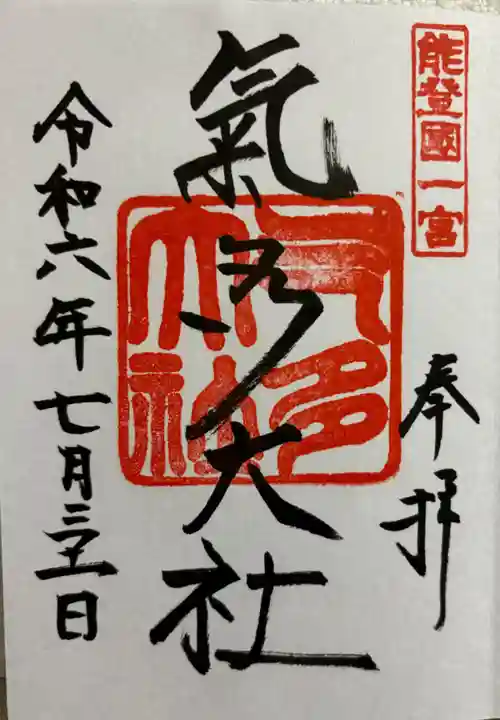 能登國一宮
奉拝
氣多大社
气多大社
令和六年七月三十一日